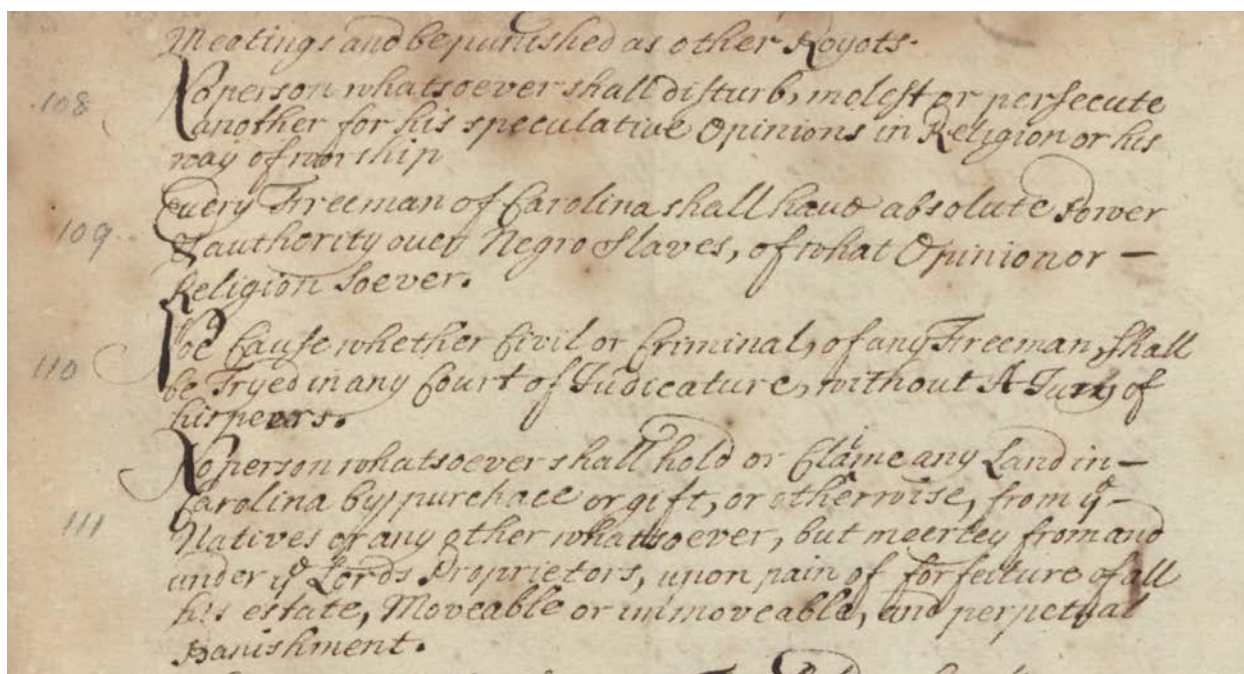 Meetings and be punished as other Royots.
108 No person whatsoever shall disturb, molest or persecute
another for his speculative Opinions in Religion or his
way of worship
109 Every Freeman of Carolina shall have absolute Power
& authority over Negro Slaves, of what Opinion or —
Religion Soever.
110 Noe Cause whether Civil or Criminal, of any Freeman, Shall
be Tryed in any Court of Judicature, without A Jury of
his peers.
No person whatsoever shall hold or Claime any Land in —
Carolina by purchace or gift, or otherwise, from ye —
111 Natives or any other whatsoever, but meerley from and
under ye Lords Proprietors, upon pain of forfeiture of all
his estate, Moveable or immoveable, and perpetual
Banishment.